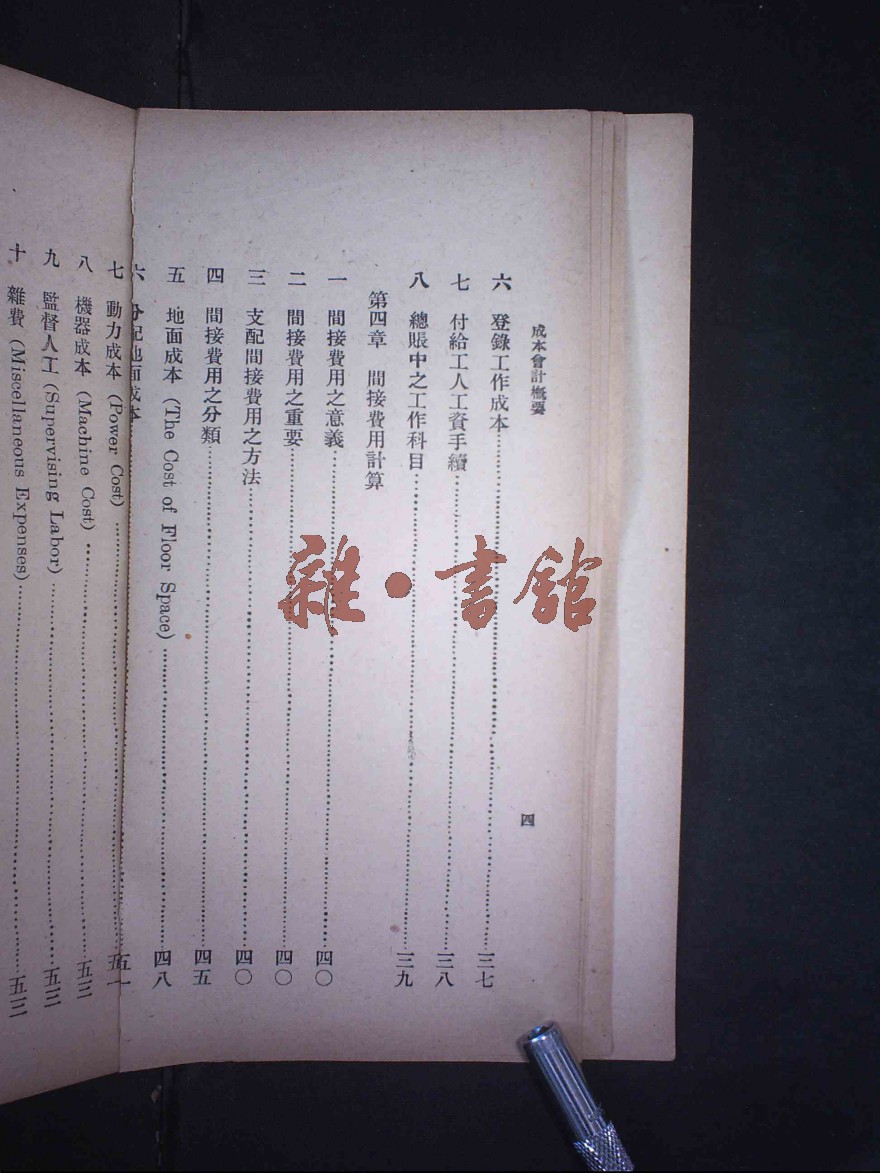 成本會計概要
四
六 登錄工作成本……三七
七 付給工人工資手續……三八
八 總賬中之工作科目……三九
第四章 間接費用計算
一 間接費用之意義……四〇
二 間接費用之重要……四〇
三 支配間接費用之方法……四〇
四 間接費用之分類……四五
五 地面成本 (The Cost of Floor Space)……四八
六 分配地面成本……
七 動力成本 (Power Cost)……五一
八 機器成本 (Machine Cost)……五三
九 監督人工 (Supervising Labor)……五三
十 雜費 (Miscellaneous Expenses)……五三
雜·書館